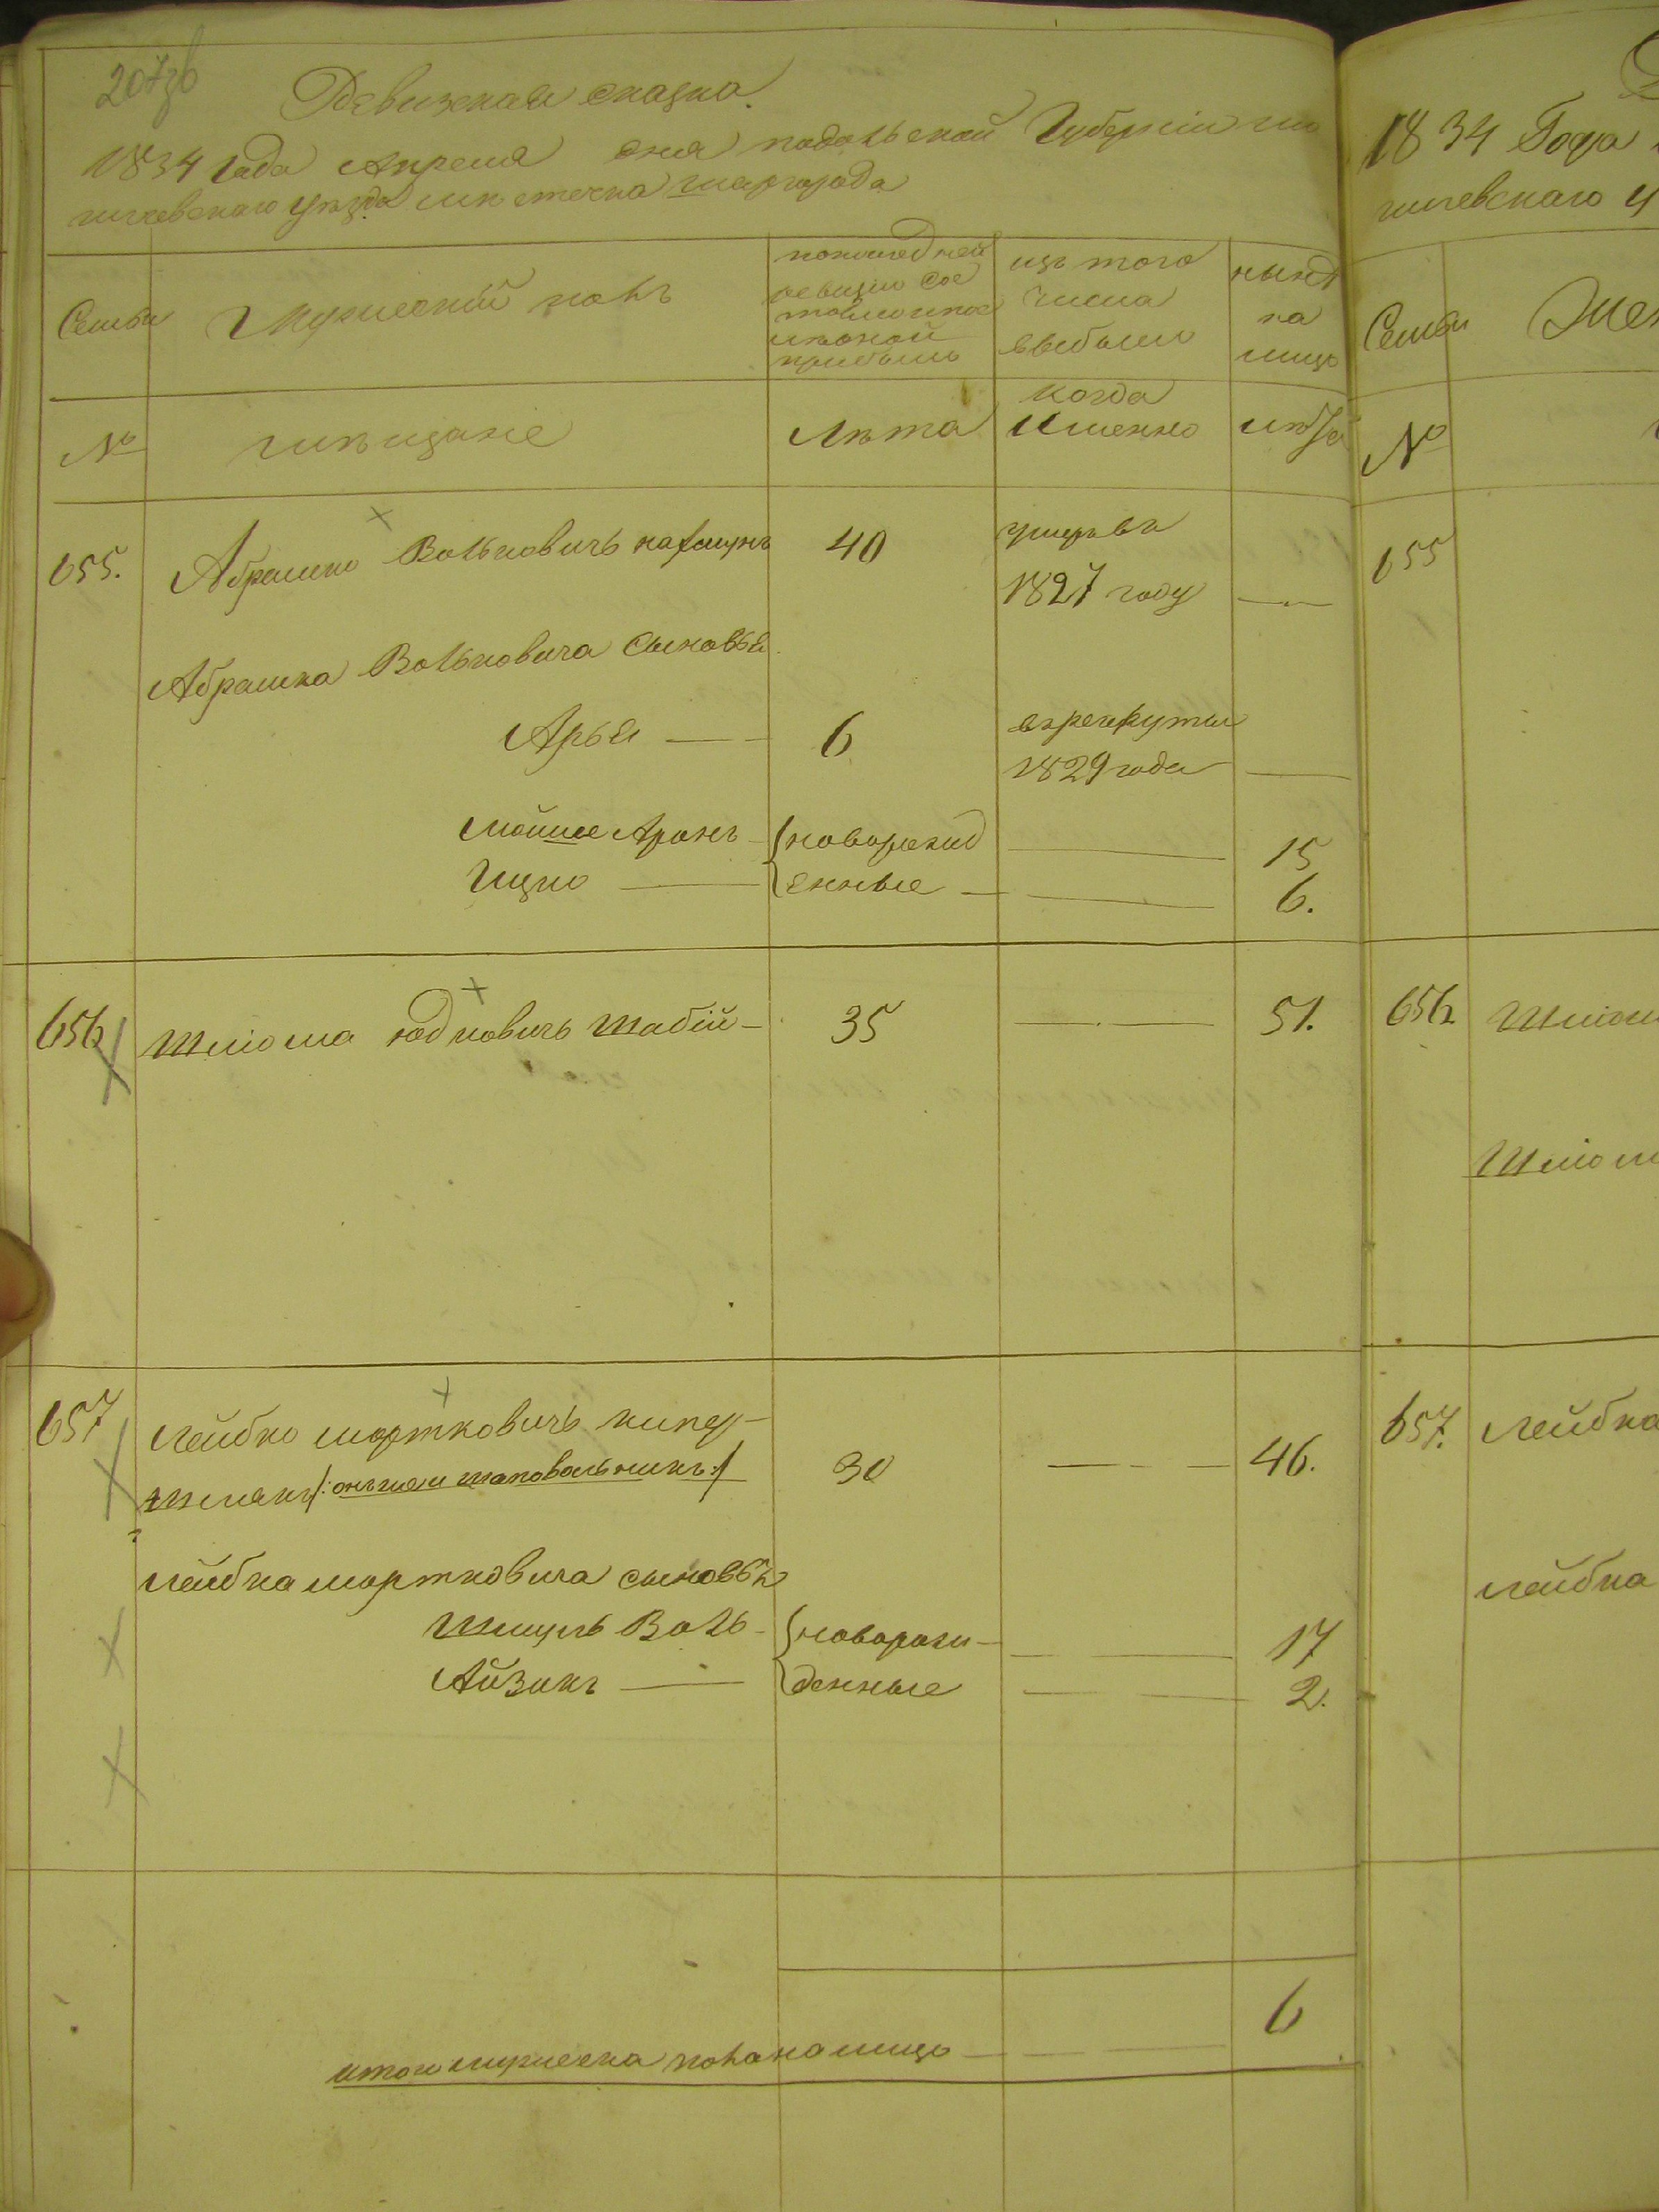 207зв
Ревизская сказка
1834 года Апреля дня подольской Губернiи мо
гилевскаго уѣзда мѣстечка шаргорода
Семьи
Мужескiй полъ
по последней
ревизiи сос
тояло и пос
ле оной
прибыло
изъ того
числа
выбыло
нынѣ
на
лицо
№
мѣщане
Лѣта
когда
Именно
лѣта
655.
Абрамко Вольковичь
40
умръ въ
1827 году
Абрамка Вольковича Сыновья
Арья
6
въ рекруты
1829 года
Мойше Аронъ
новорожд
15
Ицко
енные
6.
656
Шлiома Юдковичь Шабiй
35
51.
657
Лейбко мортковичь кипер-
шмакъ /: онъ же и шаповальникъ :/
30
46.
Лейбка мортковича сыновья
Шмуль Воль
новорож-
17
Айзикъ
денные
2.
6
итого мужеска пола на лицо
1834 Года
гилевскаго у
Семьи
Жен
№
655
656
Шлiом
Шлiом
657.
Лейбка
Лейбка